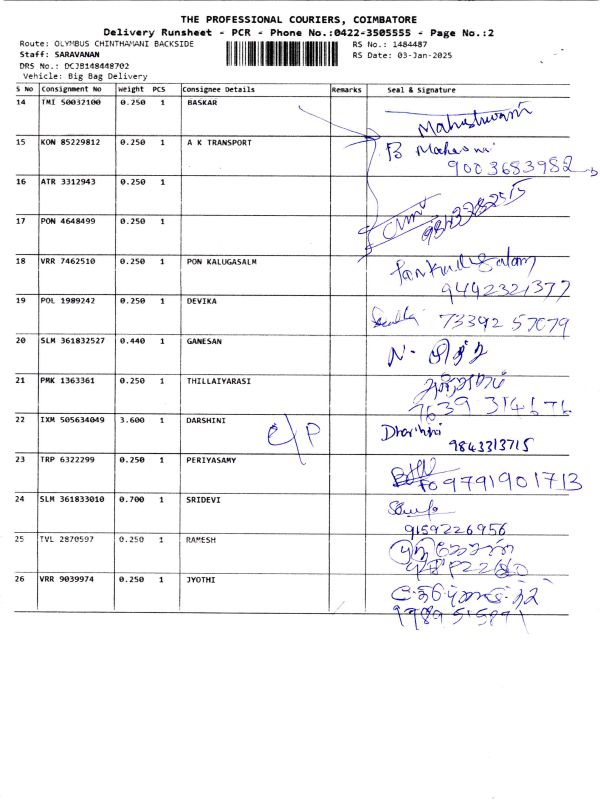 THE PROFESSIONAL COURIERS, COIMBATORE
Delivery Runsheet - PCR - Phone No.:0422-3505555 - Page No.:2
Route: OLYMBUS CHINTHAMANI BACKSIDE RS No.: 1484487
Staff: SARAVANAN RS Date: 03-Jan-2025
DRS No.: DCJB148448702
Vehicle: Big Bag Delivery
S No Consignment No Weight PCS Consignee Details Remarks Seal & Signature
14 TMI 50032100 0.250 1 BASKAR Maheshwari
15 KON 85229812 0.250 1 A K TRANSPORT B
9003683982
16 ATR 3312943 0.250 1
17 PON 4648499 0.250 1
18 VRR 7462510 0.250 1 PON KALUGASALM
9442321377
19 POL 1989242 0.250 1 DEVIKA 73392 57079
20 SLM 361832527 0.440 1 GANESAN
21 PMK 1363361 0.250 1 THILLAIYARASI
7639 314676
22 IXM 505634049 3.600 1 DARSHINI c/p Dharshini
9843313715
23 TRP 6322299 0.250 1 PERIYASAMY 9791901713
24 SLM 361833010 0.700 1 SRIDEVI
9159226956
25 TVL 2870597 0.250 1 RAMESH
26 VRR 9039974 0.250 1 JYOTHI